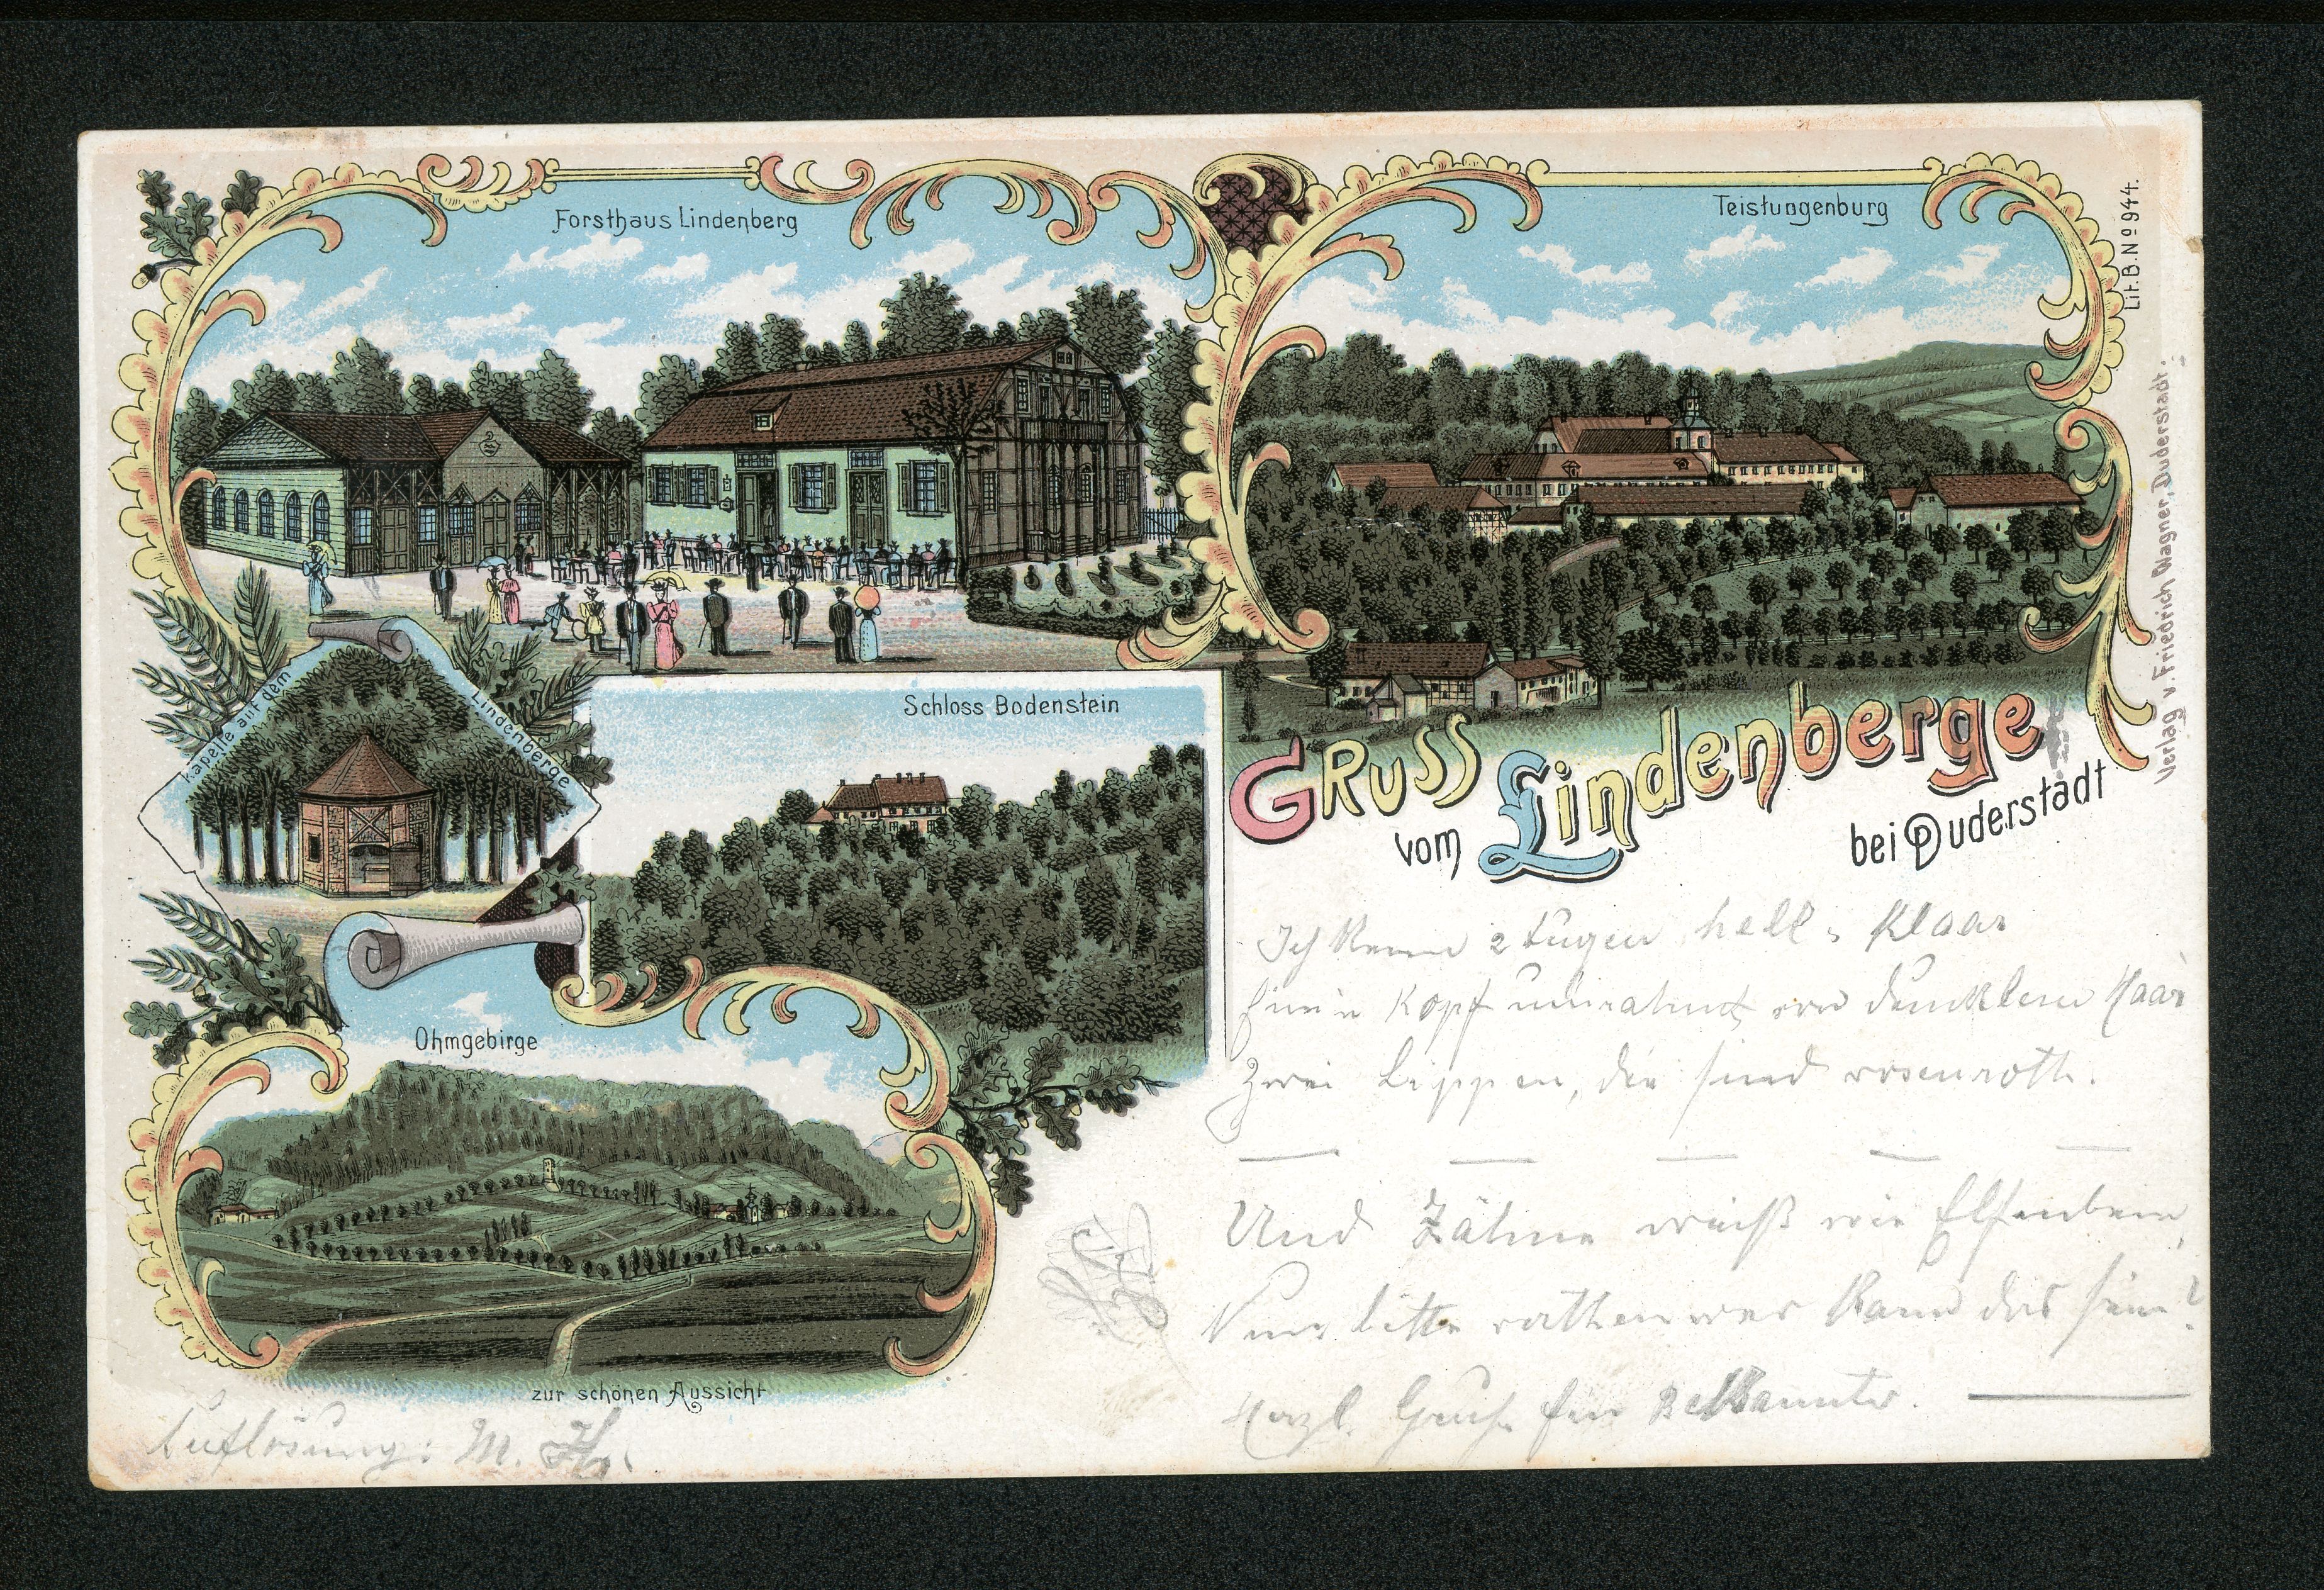 Forsthaus Lindenberg
Teistungenburg
Lit. B. No 944.
Verlag v. Friedrich Wagner, Duderstadt.
Kapelle auf dem Lindenberge
Schloss Bodenstein
Gruss
vom Lindenberge
bei Duderstadt
Ohmgebirge
zur schönen Aussicht
Ich kenne 2 Augen hell u. klaar
Kopf umrahmt von dunklem Haar
Zwei Lippen, die sind rosenroth.
Und Zähne weiß wie Elfenbein,
Nun bitte rathen wer kann das sein?
Herzl. Gruß Bekannter.
Auflösung: M. H.